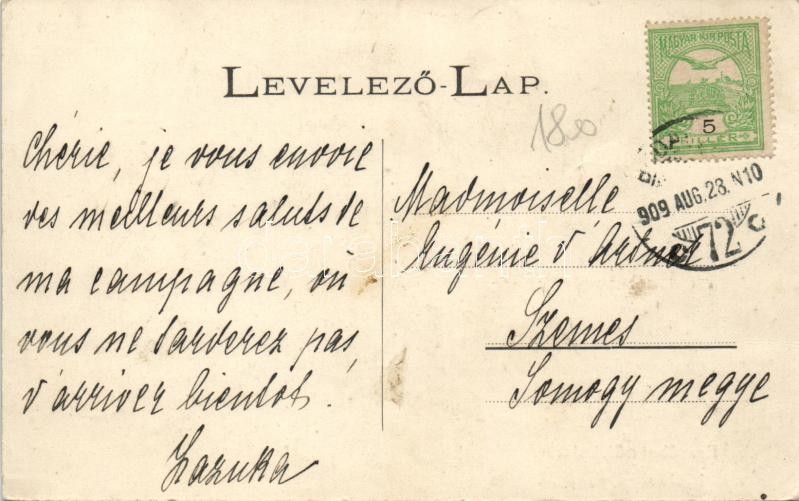 LEVELEZŐ-LAP.
MAGYAR KIR. POSTA
5
FILLER
180
909 AUG. 28. N10
72
Chérie, je vous envoie
des meilleurs saluts de
ma campagne, où
vous ne tarderez pas,
d'arriver bientot.
Madmoiselle
Eugénie d'
Szemes
Somogy megye